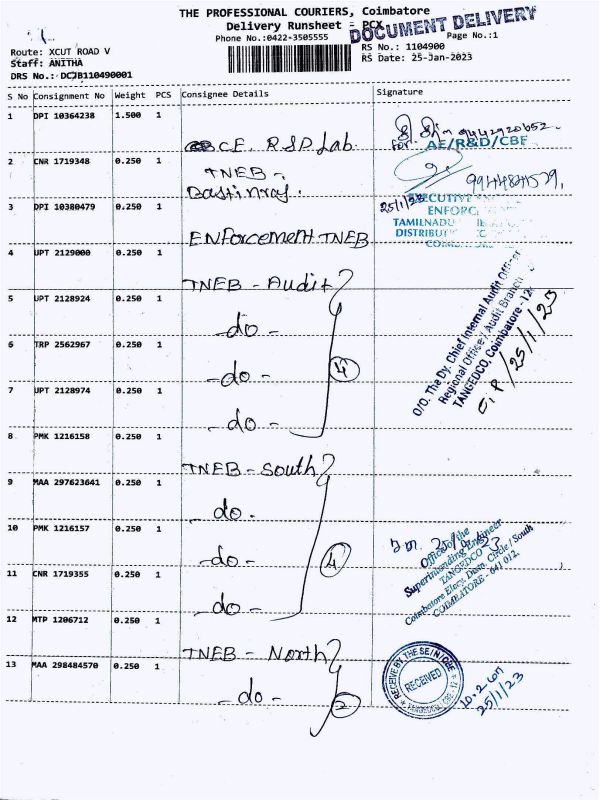 THE PROFESSIONAL COURIERS, Coimbatore
Delivery Runsheet - PCX
DOCUMENT DELIVERY
Phone No.:0422-3505555
Page No.:1
Route: XCUT ROAD V
RS No.: 1104900
Staff: ANITHA
RS Date: 25-Jan-2023
DRS No.: DCJB110490001
S No Consignment No Weight PCS Consignee Details Signature
1 DPI 10364238 1.500 1
CE. R&D. Lab.
9442920652.
For AE/R&D/CBF
2 CNR 1719348 0.250 1
TNEB -
25/1/23
3 DPI 10380479 0.250 1
ENFORC
TAMILNADU
DISTRIBUT
Enforcement TNEB
4 UPT 2129000 0.250 1
TNEB - Audit
5 UPT 2128924 0.250 1
- do -
6 TRP 2562967 0.250 1
- do - 4
7 UPT 2128974 0.250 1
- do -
O/O. The Dy. Chief Internal Audit Officer
Regional Office / Audit Branch
TANGEDCO, Coimbatore - 12.
25/1/23
8 PMK 1216158 0.250 1
TNEB - South
9 MAA 297623641 0.250 1
- do -
10 PMK 1216157 0.250 1
- do - 4
11 CNR 1719355 0.250 1
- do -
Office of the
Superintending Engineer
TANGEDCO
Coimbatore Elecy. Distn. Circle / South
COIMBATORE - 641 012.
12 MTP 1206712 0.250 1
TNEB - North
13 MAA 298484570 0.250 1
- do - 2
RECEIVE BY THE SE/N/CBE
RECEIVED
TANGEDCO, CBE-12
25/1/23